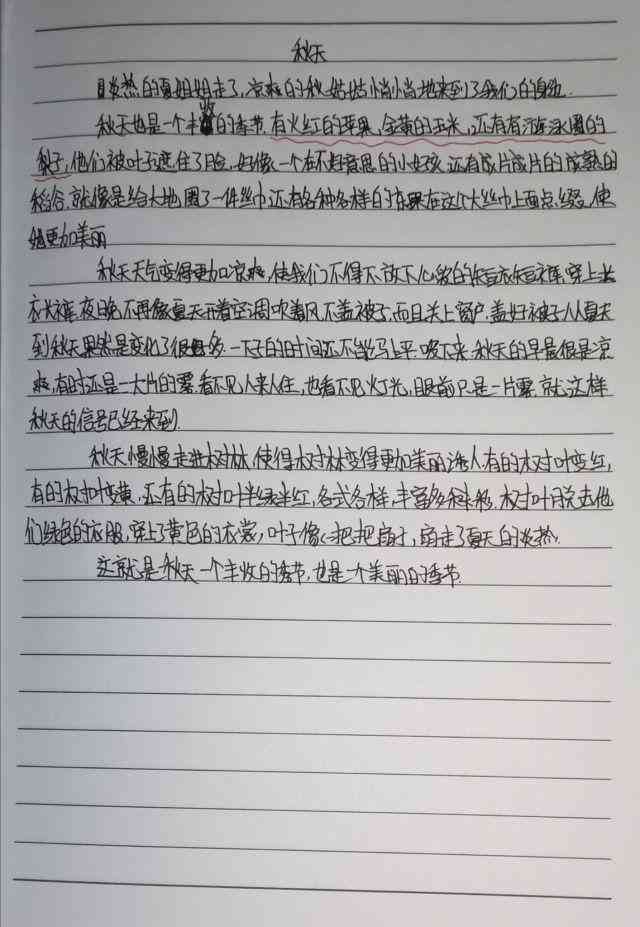 秋天
炎热的夏姐姐走了,凉爽的秋姑姑悄悄地来到了我们的身边.
秋天也是一个丰的季节.有火红的苹果,金黄的玉米,还有有的
梨子,他们被叶子遮住了脸.好像一个不好意思的小女孩.还有成片成片的成熟的
稻谷.就像是给大地围了一件丝巾.还有各种各样的在这个大丝巾上面点缀.使
她更加美丽
秋天天气变得更加凉爽,使我们不得不放下心爱的短衣短裤.穿上长
衣长裤.夜晚不再像夏天开着空调吹着风,不盖被子.而且关上窗户.盖好被子从夏天
到秋天果然是变化了很多.一下子的时间还不能马上平下来.秋天的早晨很是凉
爽,有时还是一大片的雾.看不见人来人往,也看不见灯光,眼前只是一片雾.就这样
秋天的信号已经来到.
秋天慢慢走进树林.使得树林变得更加美丽诱人有的树叶变红,
有的树叶变黄.还有的树叶半绿半红,各式各样,丰富多彩.树叶脱去他
们绿色的衣服,穿上了黄色的衣裳,叶子像一把把扇子,扇走了夏天的炎热.
这就是秋天一个丰收的季节,也是一个美丽的季节.